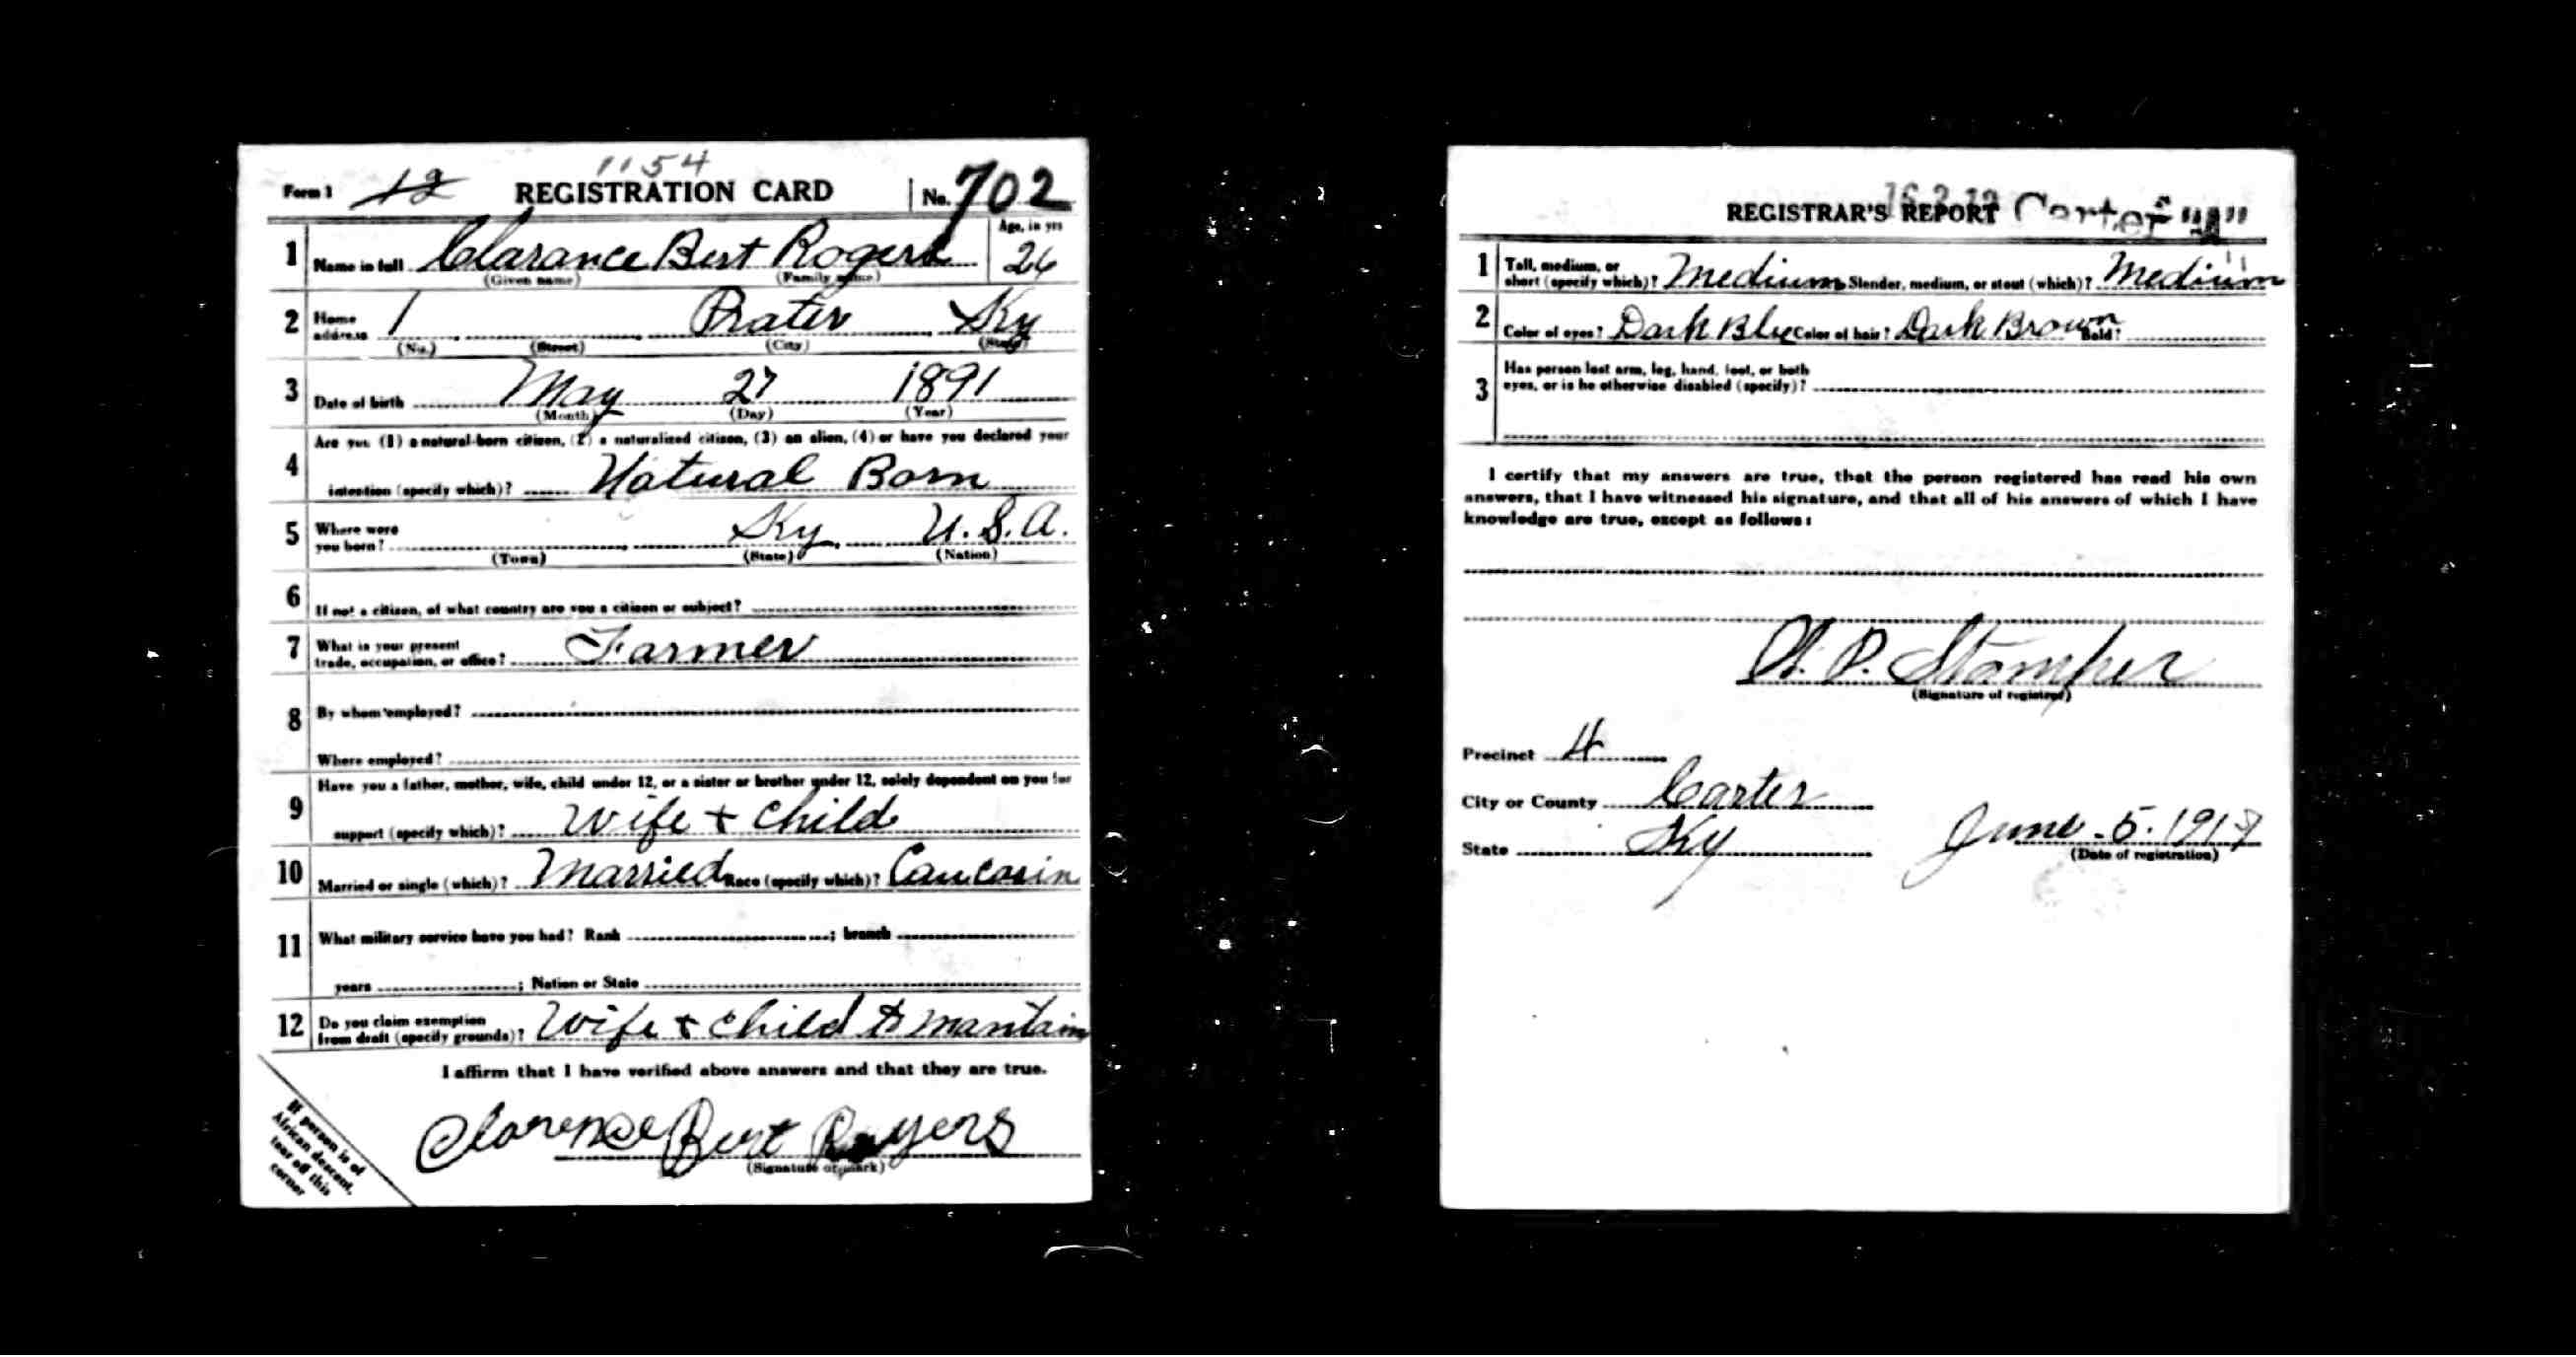 1154
Form 1 12 REGISTRATION CARD No. 702
1 Name in full Clarance Bert Rogers Age, in yrs 26
(Given name) (Family name)
2 Home address 1 Prater Ky
(No.) (Street) (City) (State)
3 Date of birth May 27 1891
(Month) (Day) (Year)
4 Are you (1) a natural-born citizen, (2) a naturalized citizen, (3) an alien, (4) or have you declared your
intention (specify which)? Natural Born
5 Where were you born? Ky U.S.A.
(Town) (State) (Nation)
6 If not a citizen, of what country are you a citizen or subject?
7 What is your present
trade, occupation, or office? Farmer
8 By whom employed?
Where employed?
9 Have you a father, mother, wife, child under 12, or a sister or brother under 12, solely dependent on you for
support (specify which)? Wife + Child
10 Married or single (which)? Married Race (specify which)? Caucasin
11 What military service have you had? Rank ; branch
years ; Nation or State
12 Do you claim exemption
from draft (specify grounds)? Wife + Child to mantain
I affirm that I have verified above answers and that they are true.
Clarence Bert Rogers
(Signature or mark)
If person is of
African descent,
tear off this
corner
REGISTRAR'S REPORT Carter
1 Tall, medium, or
short (specify which)? Medium Slender, medium, or stout (which)? Medium
2 Color of eyes? Dark Blue Color of hair? Dark Brown Bald?
3 Has person lost arm, leg, hand, foot, or both
eyes, or is he otherwise disabled (specify)?
I certify that my answers are true, that the person registered has read his own
answers, that I have witnessed his signature, and that all of his answers of which I have
knowledge are true, except as follows:
P. Stamper
(Signature of registrar)
Precinct 4
City or County Carter
State Ky June 5. 1917
(Date of registration)